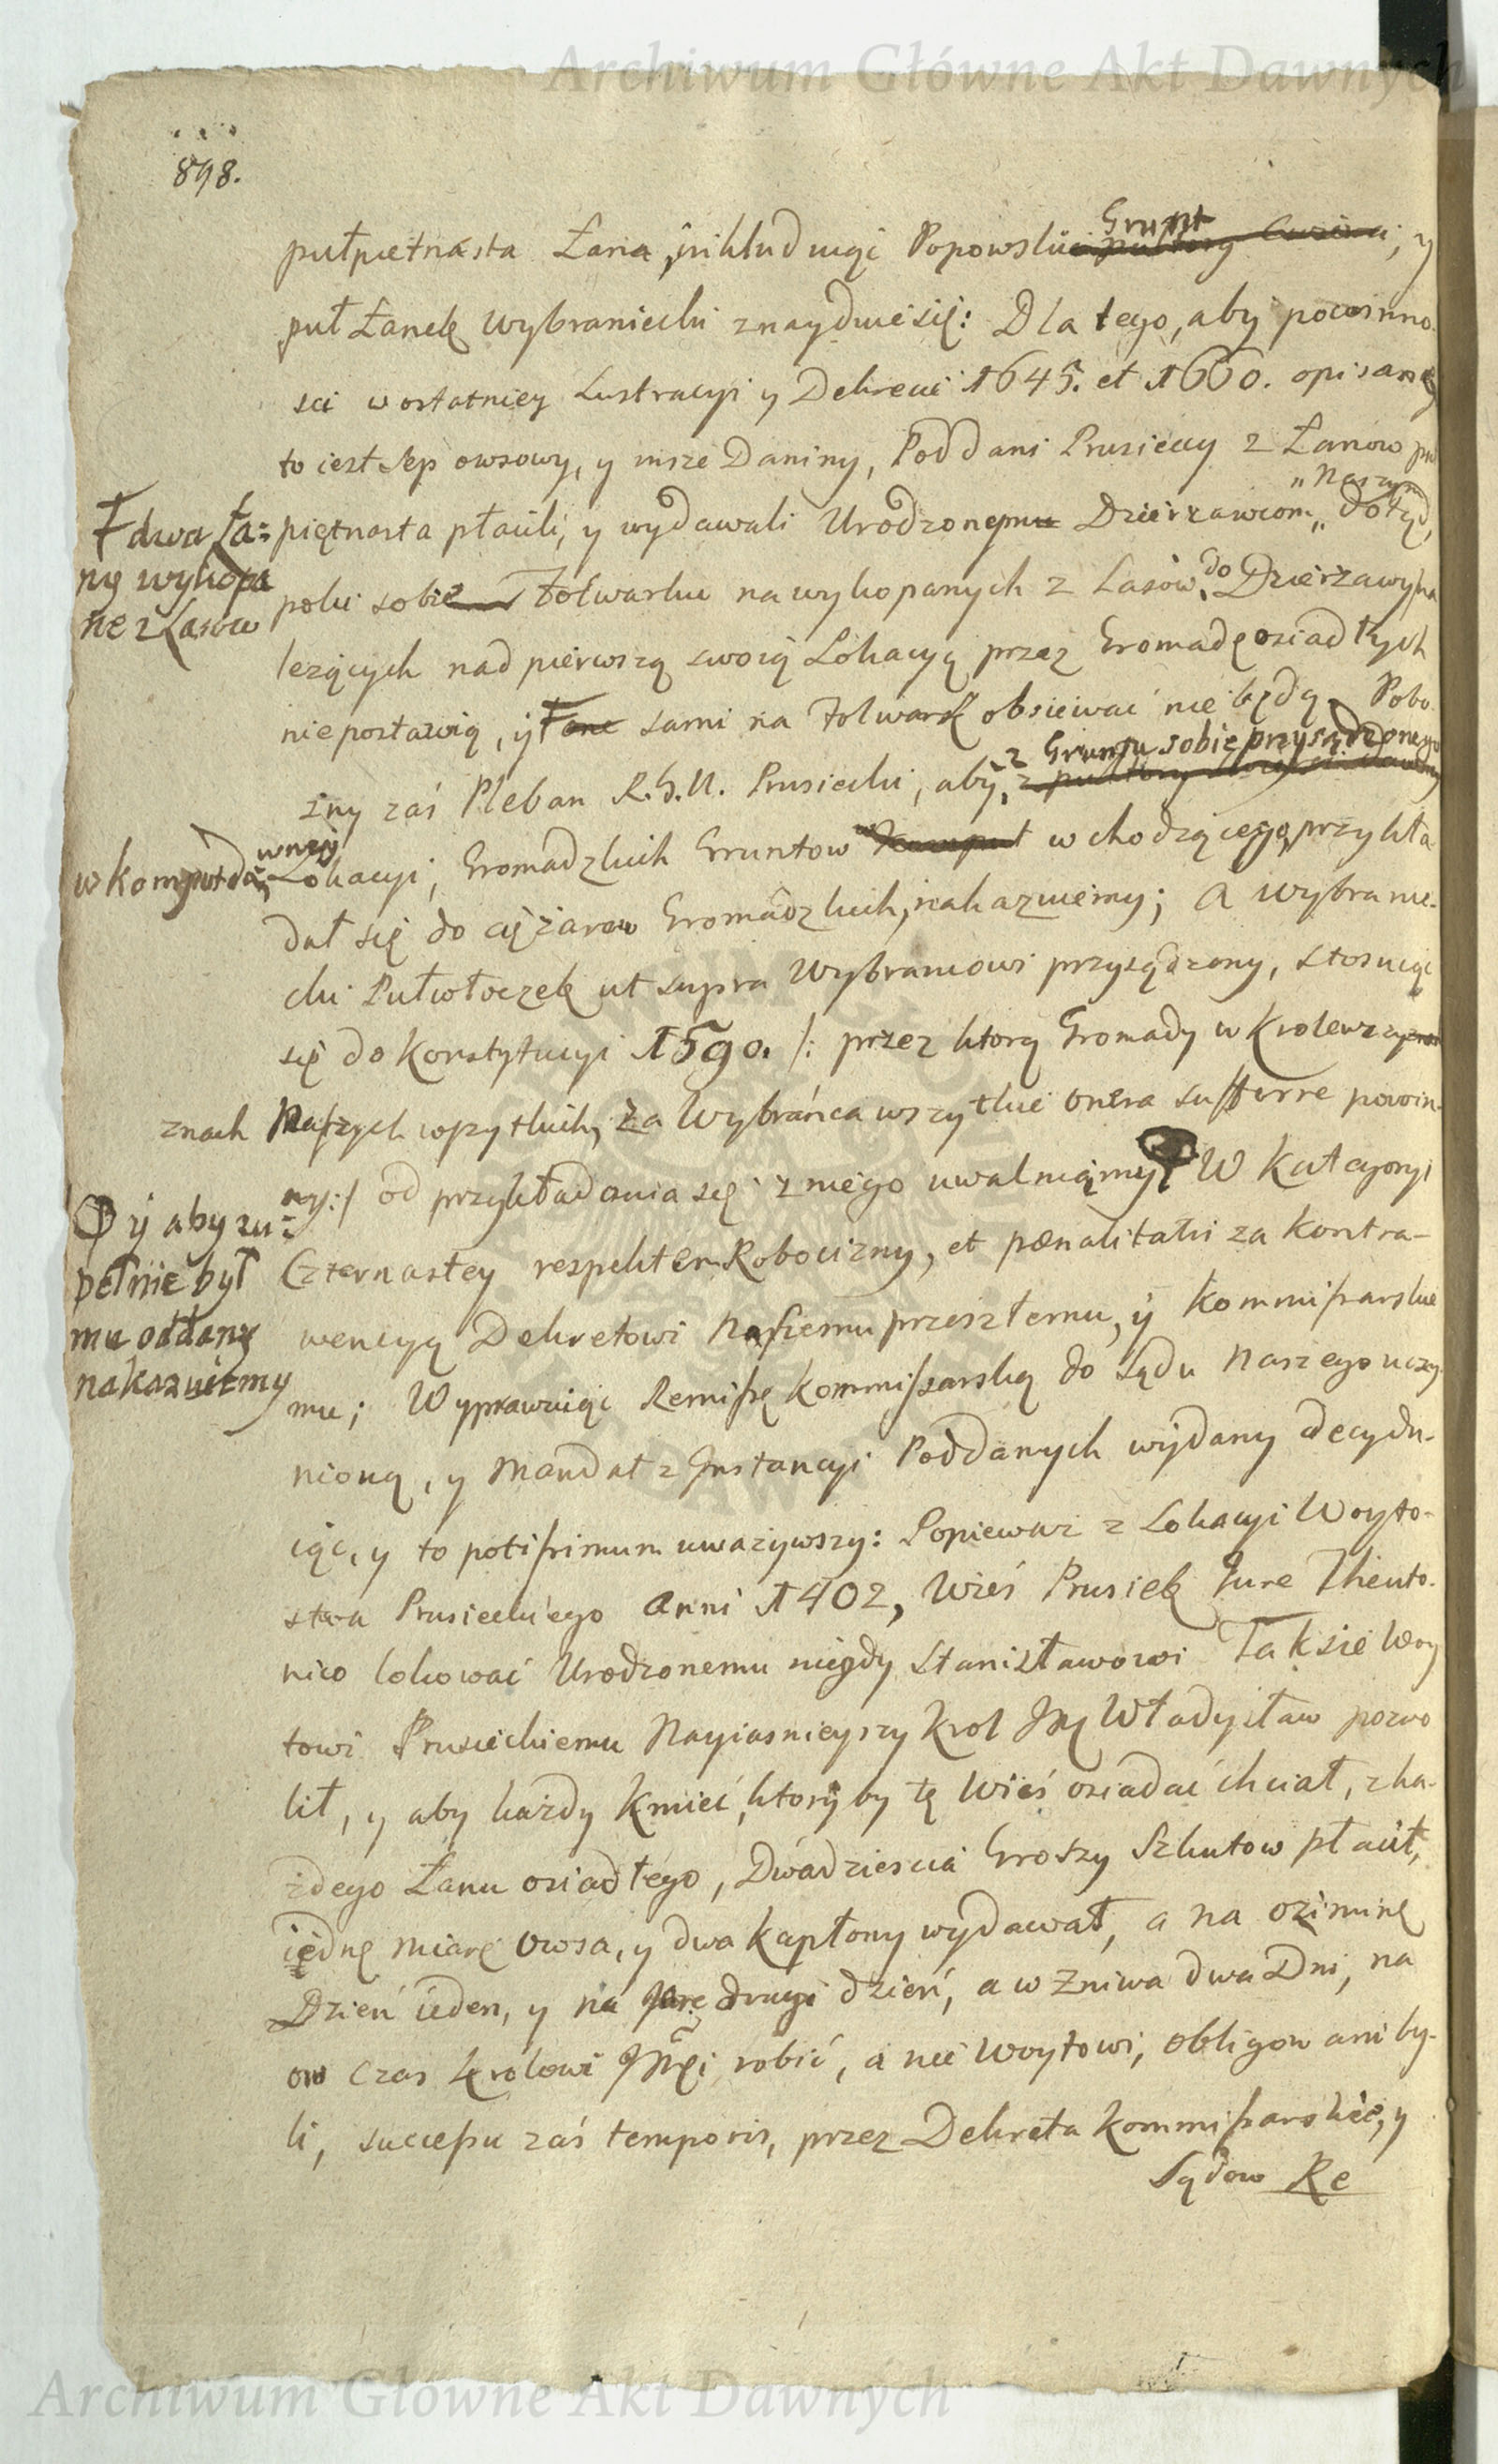 Archiwum Główne Akt Dawnych
898.
Grunt
pułpiętnasta Łana, inkluduiąc Popowski ; y
puł Łanek Wybraniecki znayduie się: Dla tego, aby powinno-
sci w ostatniey Lustracyi y Dekreci 1645. et 1660. opisane
to iest Sep owsowy, y insze Daniny, Poddani Prusieccy z Łanow puł
„Naszym
piętnasta płacili, y wydawali Urodzonym Dzierzawcom„ dotąd,
Ŧ dwa Ła=
ny wykopa
ne z Lasow
poki sobie Folwarku na wykopanych z Lasów, do Dzierżawy na
leżących nad pierwszą swoią Lokacyą przez Gromadę osiadłych
nie postawią, y Ŧ one sami na Folwark obsiewać nie będą. Pobo-
z Gruntu sobie przysądzonego
zny zaś Pleban R. G. U. Prusiecki, aby,
w komput da=
wney
Lokacyi, Gromadzkich Gruntow wchodzącego, przykła
dał się do ciężarow Gromadzkich, nakazuiemy; A wybranie-
cki Pułwłoczek ut supra Wybrańcowi przysądzony, stosuiąc
się do Konstytucyi 1590. /: przez ktorą Gromady w Krolewszczy
znach Naszych wszytkich, za Wybrańca wszytkie onera sufferre powin-
ny :/ od przykładania się z niego uwalniamy W Kategoryi
Φ y aby zu=
pełnie był
mu oddany
nakazuiemy
Czternastey respektem Robocizny, et pœnalitatis za kontra-
wencyą Dekretowi Naszemu przeszłemu, y Kommissarskie
mu; Wyprawuiąc Remissę Kommissarską do Sądu Naszego uczy
nioną, y Mandat z Instancyi Poddanych wydany decydu-
iąc, y to potissimum uważywszy: Poniewaz z Lokacyi Woyto-
stwa Prusieckiego Anni 1402, Wieś Prusiek Jure Theuto-
nico lokować Urodzonemu niegdy Stanisławowi Taksie Woy
towi Prusieckiemu Nayiasnieyszy Krol Jmć Władysław pozwo
lił, y aby każdy Kmieć, ktory by tę Wieś osiadać chciał, z ka-
żdego Łanu osiadłego, Dwadziescia Groszy Szkutow płacił,
iednę miarę Owsa, y dwa Kapłony wydawał, a na oziminę
Dzień ieden, y na Jarę drugi dzień, a w Żniwa dwa Dni, na
on czas Krolowi Jmći robić, a nie Woytowi, obligowani by-
li, successu zaś temporis, przez Dekreta Kommissarskie, y
Sądow Re
Archiwum Główne Akt Dawnych